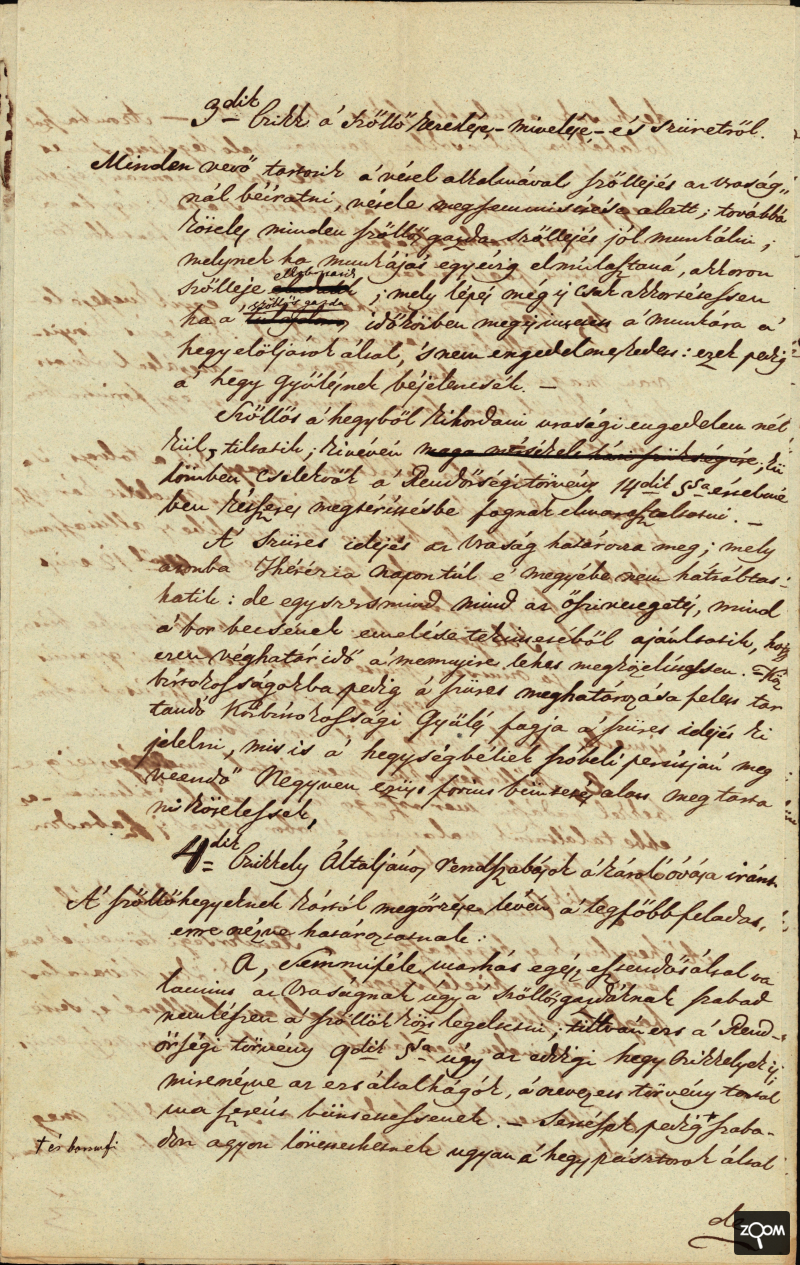 3dik Czikk a' Szőllő kerekése,- mivelése- és szüretről.
Minden vevő tartozik a' vétel alkalmával szőllejét az Uraság-
nál béíratni, vétele megsemmisítése alatt; továbbá
köteles minden szőllős gazda szőllejét jól munkálni;
melynek ha munkáját egy évig elmúlasztaná, akkoron
szőlleje ; mely lépés még is csak akkor tétessen
szőllős gazda
ha a időkőzben megintetett a' munkára a'
hegy elöljárók által, 's nem engedelmeskedett: ezek pedig
a' hegy Gyűlésnek béjelentsék. —
Szőllőt a' hegyből kihordani urasági engedelem nél
kül, tiltatik; kivévén maga
lömben cselekvők a' Rendőrségi törvény 14dik §sa értelmé
ben kétszeres megtérittésbe fognak elmarasztaltatni. —
A' Szüret idejét az Uraság határozza meg; mely
azonba Therézia napontúl e' megyébe nem hátrábtat-
hatik: de egyszersmind mind az ősz, mind
a' bor becsének emelése tekintetéből ajánltatik, hogy
ezen véghatár idő a' mennyire lehet megközelíttessen. — Köz
birtokosságokba pedig a' szüret meghatározása felett tar
tandó Közbirtokossági Gyűlés fogja a' szüret idejét ki
jelelni, mit is a' hegységbéliek szóbeli per útján meg
veendő Negyven ezüst forint büntetés alatt meg tarta
ni kötelessek,
4dik Czikkely Általjános rendszabások a' károk óvása iránt
A' szőllőhegyeknek kártól megőrzése lévén a' legfőbb feladat,
erre nézve határoztatnak:
A, Semmiféle marhát egész esztendő által va
lamint az Uraságnak úgy a' szőllős gazdáknak szabad
nem lészen a' szőllők közt legeltetni; tiltván ezt a' Rend-
őrségi törvény 9dik §sa úgy az eddigi hegy czikkelyek is
mire nézve az ezt általhágók, a' nevezett törvény tartal
ma szerént büntettessenek. — Sertések pedig † szaba-
don agyon lövettethetnek ugyan a' hegy pásztorok által
† és
de